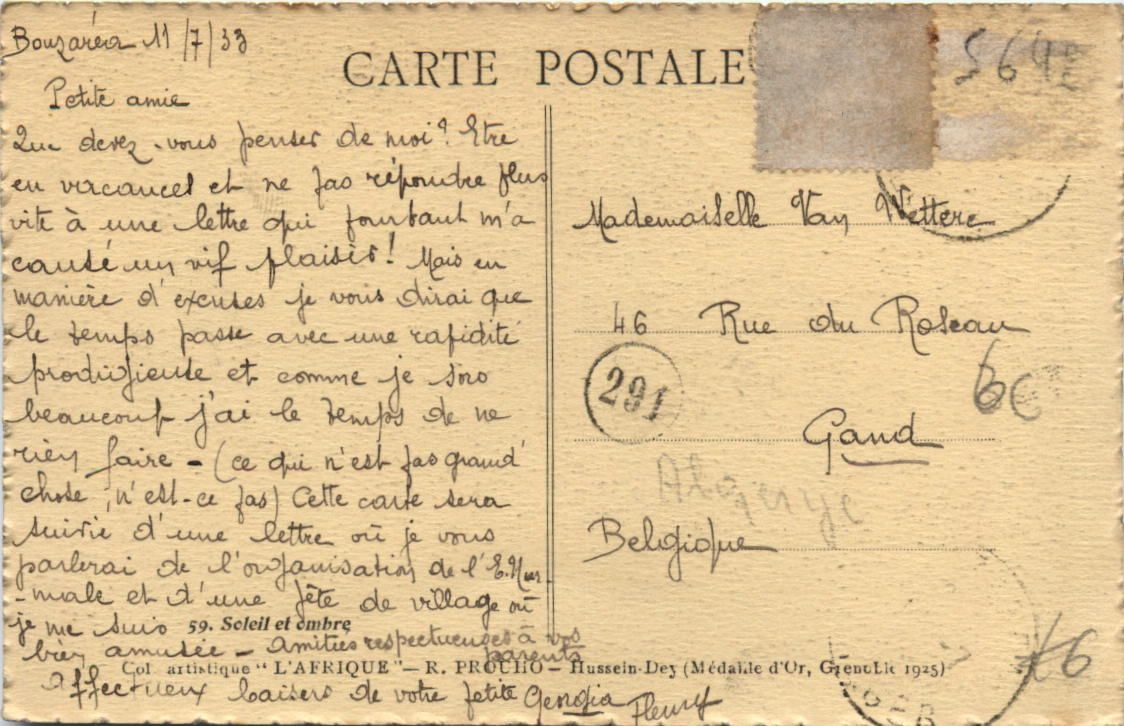 Bouzaréa 11/7/33
CARTE POSTALE
Petite amie
Que devez-vous penser de moi? Etre
en vacances et ne pas répondre plus
vite à une lettre qui pourtant m'a
causé un vif plaisir! Mais en
manière d'excuses je vous dirai que
le temps passe avec une rapidité
prodigieuse et comme je sors
beaucoup j'ai le temps de ne
rien faire - (ce qui n'est pas grand'
chose, n'est-ce pas) Cette carte sera
suivie d'une lettre où je vous
parlerai de l'organisation de l'E. Nor-
-male et d'une fête de village où
je me suis
bien amusée - Amitiés respectueuses à vos
parents
Affectueux baisers de votre petite Georgia Fleury
59. Soleil et ombre
Col. artistique "L'AFRIQUE" — R. PROUHO — Hussein-Dey (Médaille d'Or, Grenoble 1925)
564
Mademoiselle Van Wettere
46 Rue du Roseau
291
Gand
Algerije
Belgique